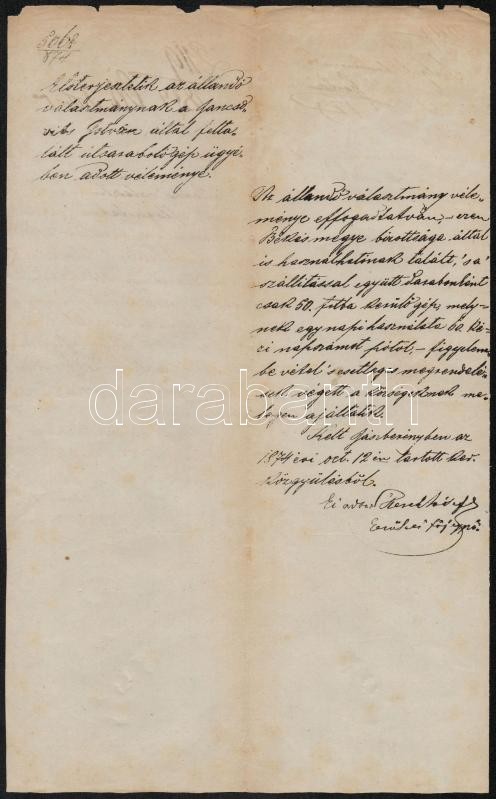 5062
874
Előterjesztetik az állandó
választmánynak a Jancso-
vits István által felta-
lált útsaraboló gép ügyé-
ben adott véleménye.
Az állandó választmány véle-
ménye elfogadtatván, – ezen
Békés megye bizottsága által
is használhatónak talált, 's a
szállítással együtt darabonkint
csak 50. frtba kerülő gép, mely-
nek egy napi használata 60. ké-
zi napszámot pótol, – figyelem-
be vétel 's esetleges megrendelé-
sek végett a községeknek me-
legen ajáltatik.
Kelt Jászberényben az
1874 évi oct. 12 én tartott ker.
közgyülésből.
Ki adta
darabanth